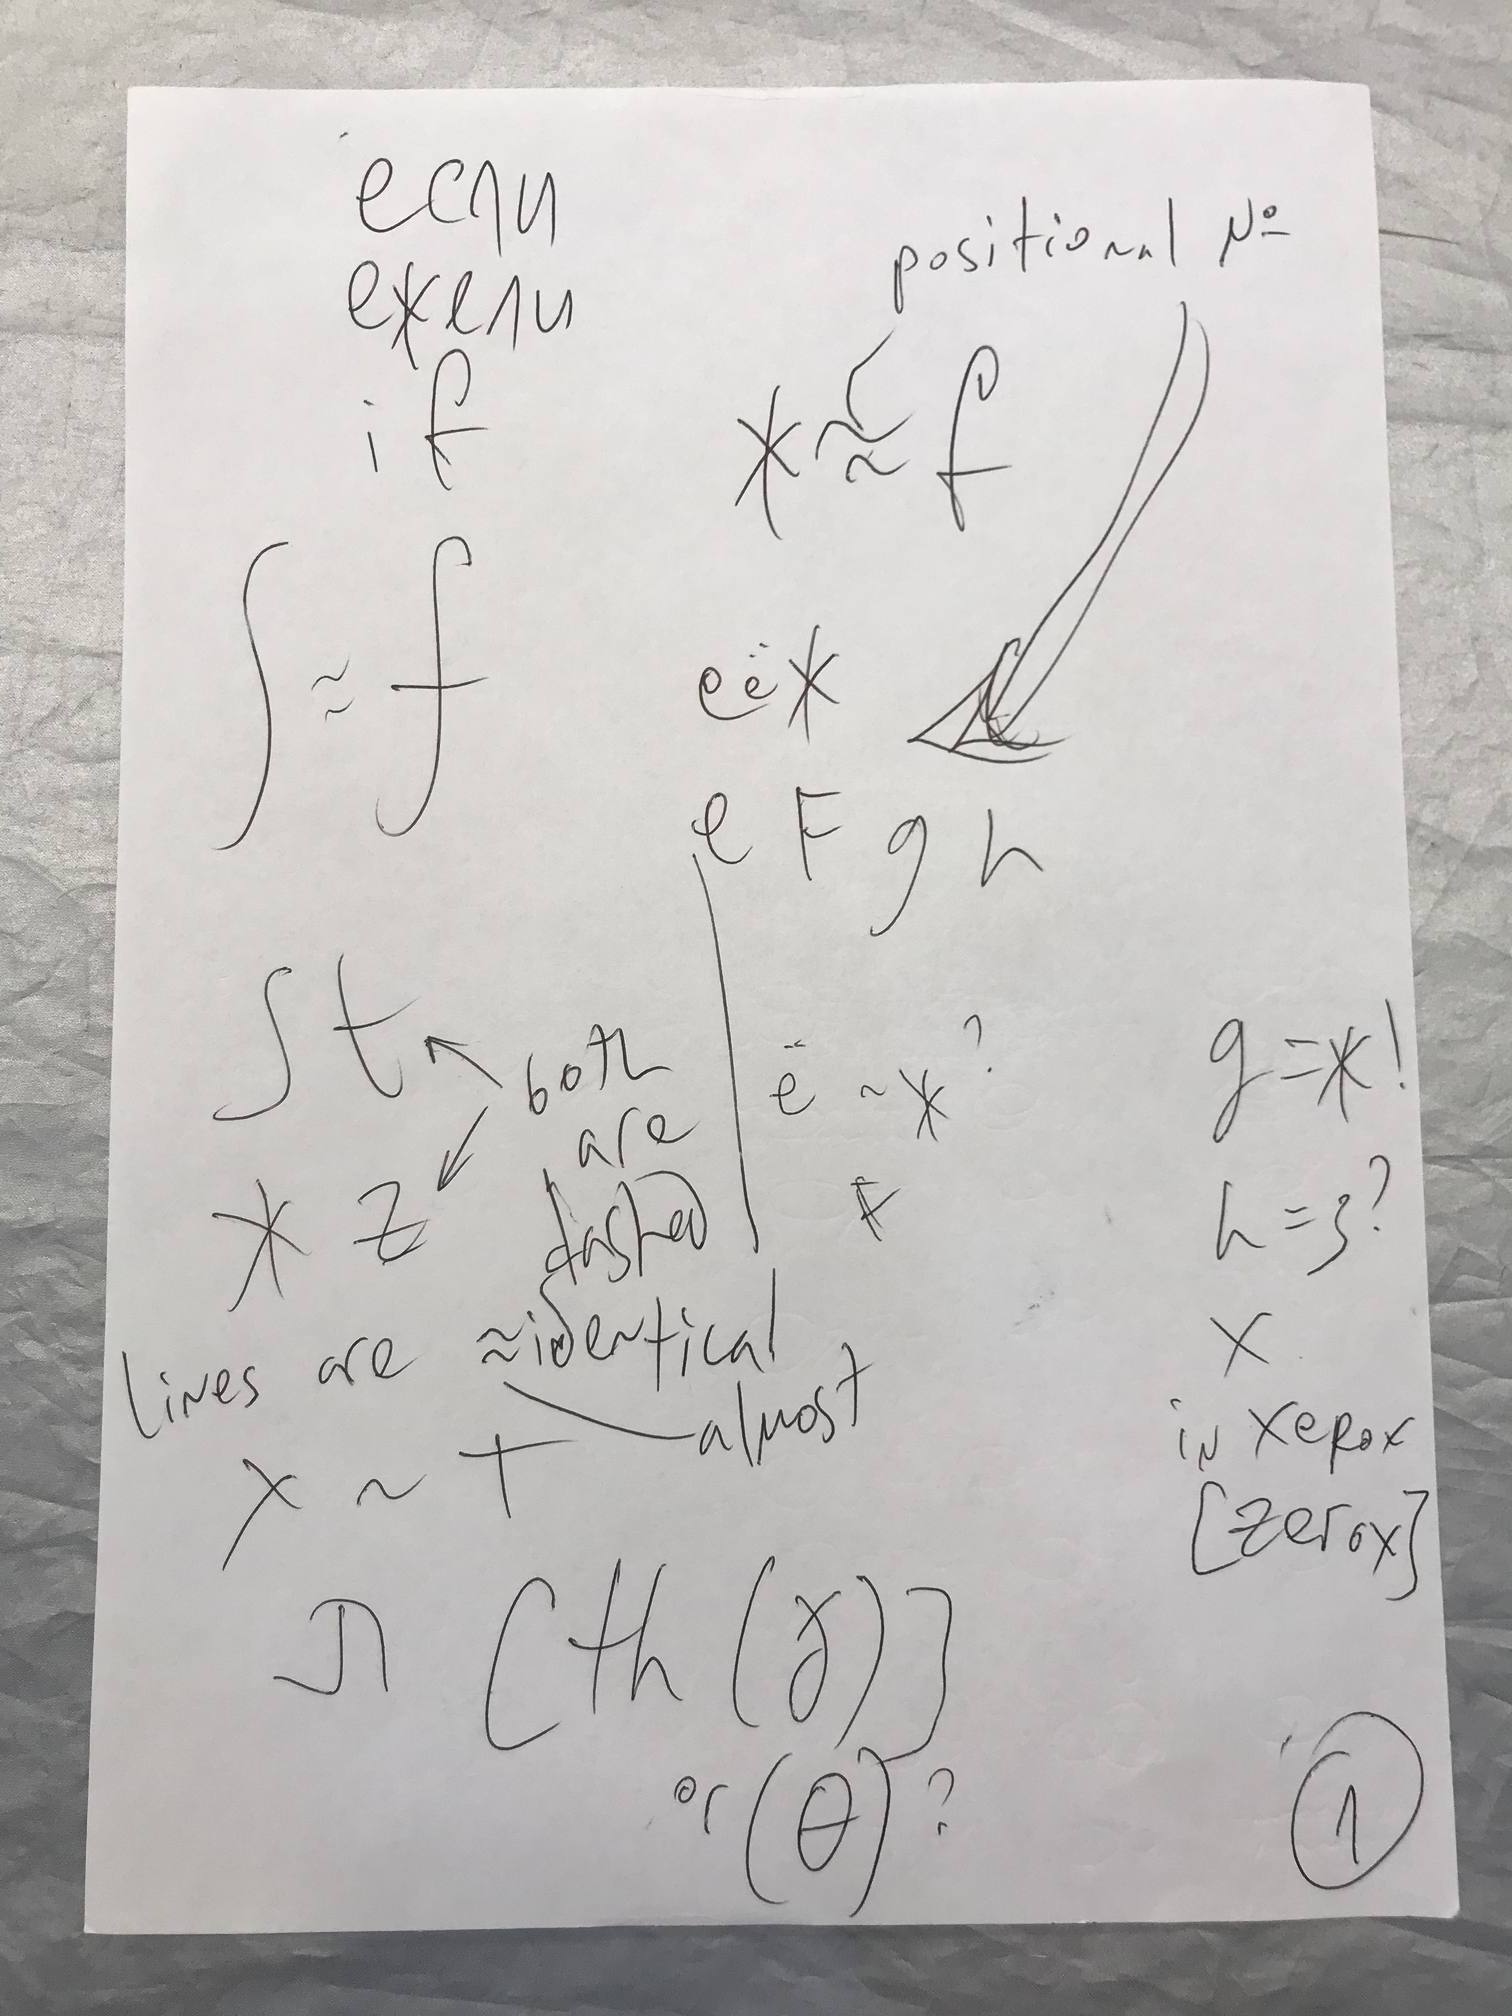 если
ежели
if
positional №
ж ≈ f
∫ ≈ f
е ё ж
e F g h
∫ t
both
are
dashed
ж z
ё ~ ж?
F
g = ж!
h = з?
x
in xerox
[zerox]
lines are ≈identical
almost
x ~ т
[th (γ)]
or (θ)?
1